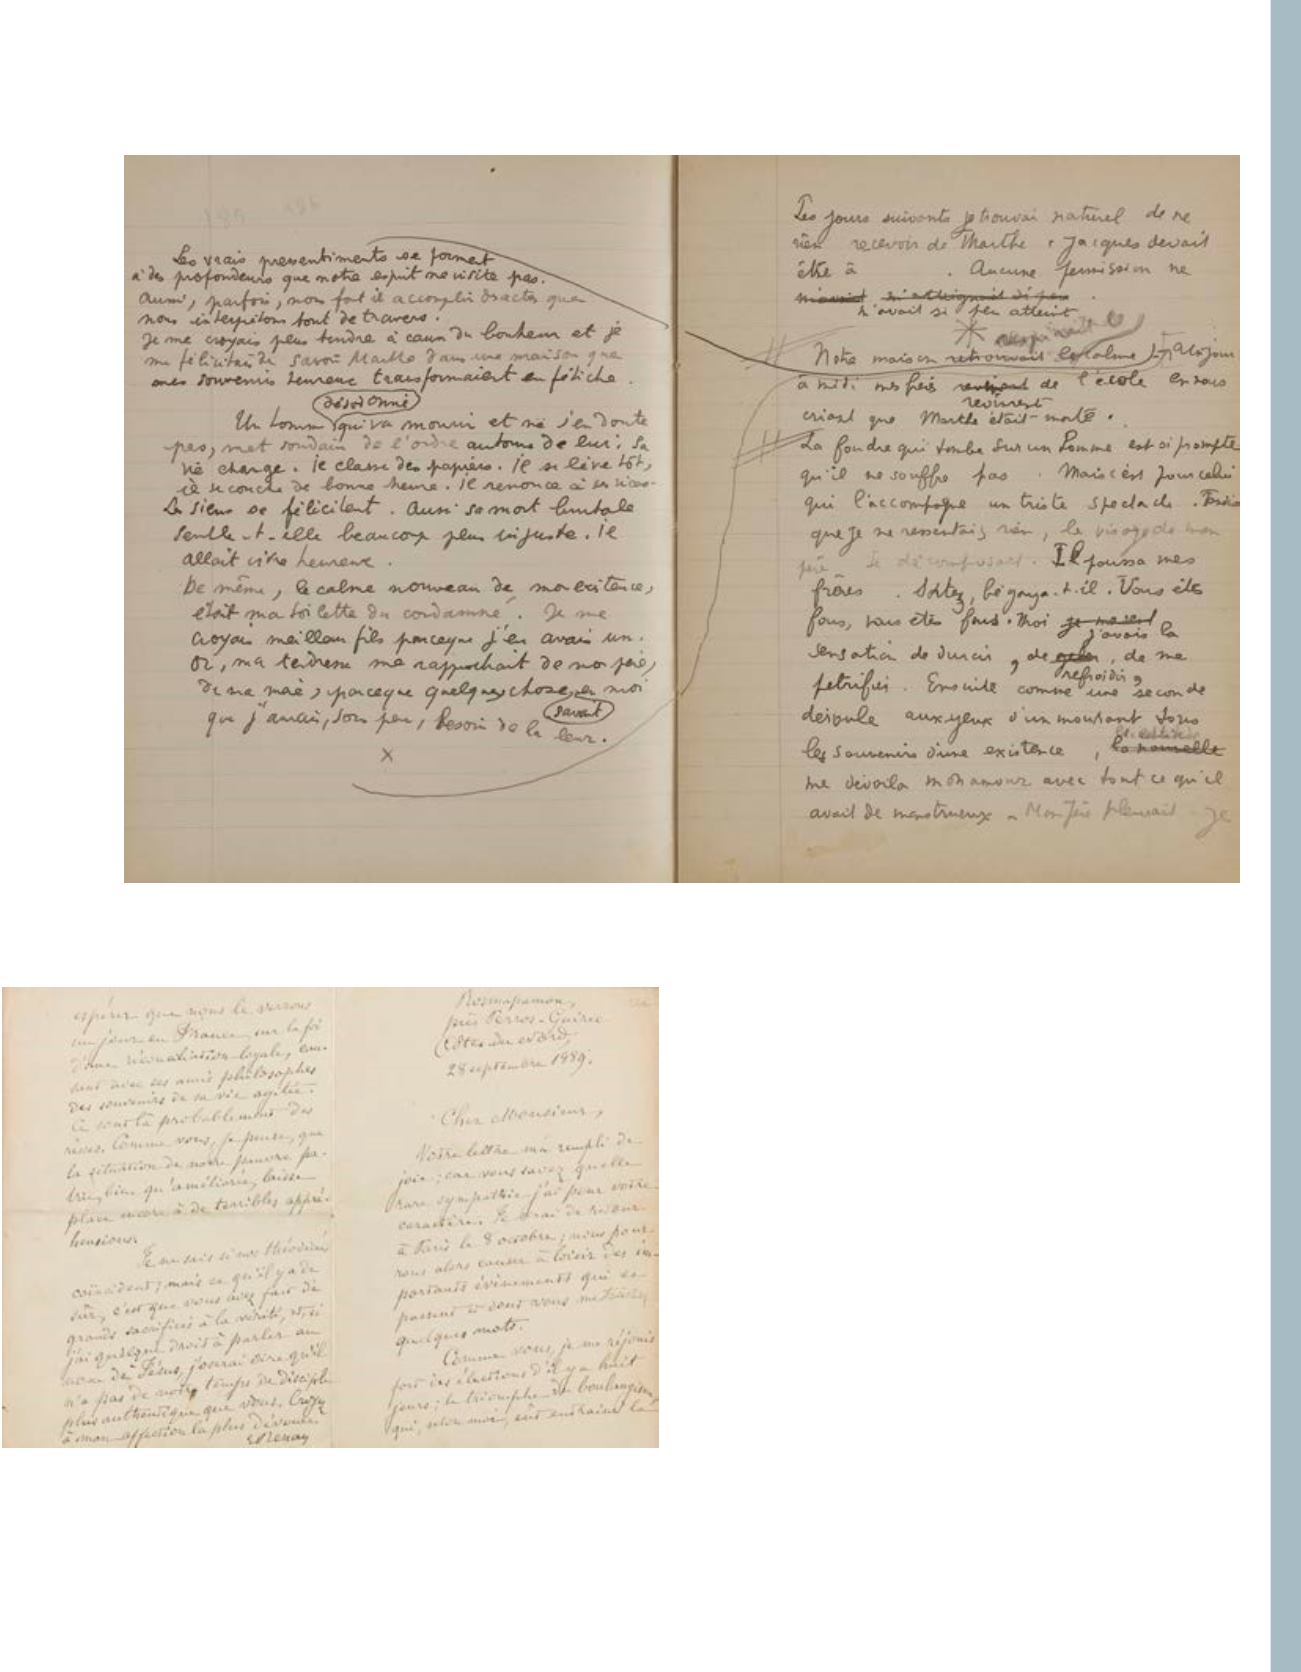 Les vrais pressentiments se forment
à des profondeurs que notre esprit ne visite pas.
Aussi, parfois, nous font il accomplir d'actes que
nous interprétons tout de travers.
Je me croyais plus tendre à cause du bonheur et je
me félicitais de savoir Marthe dans une maison que
mes souvenirs heureux transformaient en fétiche.
désordonné
Un homme qui va mourir et ne s'en doute
pas, met soudain de l'ordre autour de lui. Sa
vie change. Il classe des papiers. Il se lève tôt,
il se couche de bonne heure. Il renonce à ses vices.
Les siens se félicitent. Aussi sa mort brutale
semble-t-elle beaucoup plus injuste. Il
allait vivre heureux.
De même, le calme nouveau de mon existence,
était ma toilette du condamné. Je me
croyais meilleur fils parceque j'en avais un.
Or, ma tendresse me rapprochait de mon père,
de ma mère, parceque quelque chose en moi
savait
que j'aurais, sous peu, besoin de la leur.
X
Les jours suivants je trouvai naturel de ne
rien recevoir de Marthe. Jacques devait
être à . Aucune permission ne
n'avait si peu atteint
Notre maison retrouvait le calme. Un jour
à midi mes frères de l'école en nous
revinrent
criant que Marthe était morte.
La foudre qui tombe sur un homme est si prompte
qu'il ne souffre pas. Mais c'est pour celui
qui l'accompagne un triste spectacle. Tandis
que je ne ressentais rien, le visage de mon
père se décomposait. Il poussa mes
frères. Sortez, bégaya-t-il. Vous êtes
fous, vous êtes fous. Moi je me sent
j'avais la
sensation de durcir, de , de me
refroidir,
pétrifier. Ensuite comme une seconde
déroule aux yeux d'un mourant tous
les souvenirs d'une existence, la nouvelle
me dévoila mon amour avec tout ce qu'il
avait de monstrueux. Mon père pleurait. Je
espérer que nous le verrons
un jour en France, sur la foi
d'une réconciliation loyale, cau-
sant avec ses amis philosophes
des souvenirs de sa vie agitée.
Ce sont là probablement des
rêves. Comme vous, je pense, que
la situation de notre pauvre pa-
trie, bien qu'améliorée, laisse
place encore à de terribles appré-
hensions.
Je ne sais si nos théodicées
coïncident; mais ce qu'il y a de
sûr, c'est que vous avez fait de
grands sacrifices à la vérité, et, si
j'ai quelque droit à parler au
nom de Jésus, j'oserai dire qu'il
n'a pas de notre temps de disciple
plus authentique que vous. Croyez
à mon affection la plus dévouée.
E. Renan
Rosmapamon,
près Perros-Guirec
Côtes du Nord,
28 septembre 1889.
Cher Monsieur,
Votre lettre m'a rempli de
joie; car vous savez quelle
rare sympathie j'ai pour votre
caractère. Je serai de retour
à Paris le 8 octobre; nous pour-
rons alors causer à loisir des im-
portants événements qui se
passent et dont vous me touchez
quelques mots.
Comme vous, je me réjouis
fort des élections d'il y a huit
jours; le triomphe du boulangisme
qui, selon moi, eût entraîné la